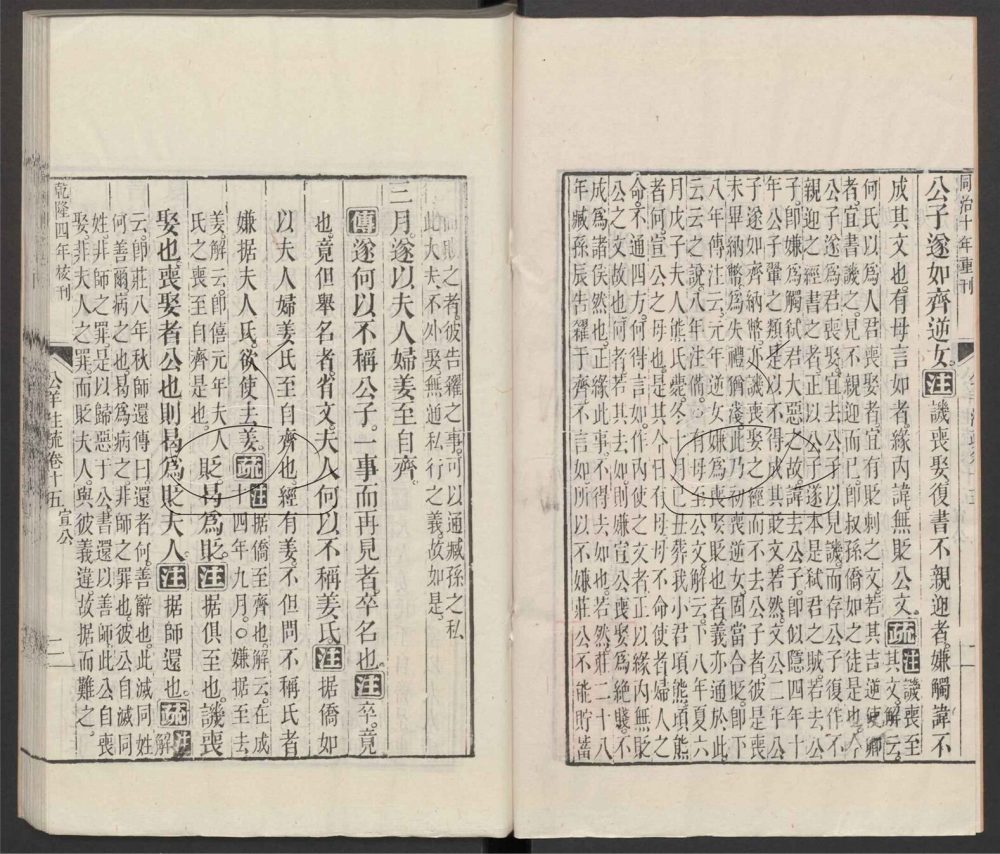 同治十年重刊
公子遂如齊逆女。注譏喪娶。復書不親迎者。嫌觸諱不
成其文也。有母言如者。緣內諱。無貶公文。疏注譏喪至
其文。解云。
何氏以為人君喪娶者。宜有貶刺之文。若其吉逆使卿
者。宜書譏之。見不親迎而已。即叔孫僑如之徒是也。今
公子遂為君喪娶。宜去公子以見譏。而存公子復作不
親迎之經書之者。正以公子遂本是弒君之賊。若去公
子。即嫌為觸弒君大惡之故。諱去公子。即似隱四年十
年公子翬之類。是以不得成其貶文。若然。文公二年公
子遂如齊納幣。亦譏喪娶之經。而不去公子者。彼是喪
未畢納幣。為失禮猶淺。此乃初喪逆女。固當合貶。即下
八年傳注云。元年逆女。嫌為喪娶貶也者。義亦通於此。
云云之說。八年注備。有母至公文。解云。下八年夏六
月戊子。夫人熊氏薨。冬十月己丑葬我小君頃熊。頃熊
者何。宣公之母也。是其今日有母。母不命使者。婦人之
命。不通四方。何得言如。作內使之文者。正以緣內無貶
公之文故也。何者。若其去如。則嫌宣公喪娶為絕賤。不
成為諸侯然也。正緣此事。不得去如也。若然。莊二十八
年臧孫辰告糴于齊。不言如。所以不嫌莊公不能貯蓄
貶之者。彼告糴之事。可以通臧孫之私
此大夫不外娶。無通私行之義。故如是。
三月。遂以夫人婦姜至自齊。
傳遂何以不稱公子。一事而再見者。卒名也。注卒。竟
也。竟但舉名者。省文。夫人何以不稱姜氏。注据僑如
以夫人婦姜氏至自齊也。經有姜。不但問不稱氏者。
嫌据夫人氏。欲使去姜。疏注据僑至齊也。解云。在成
四年九月。○嫌据至去
姜。解云。即僖元年夫人
氏之喪至自齊是也。
貶。曷為貶。注据俱至也。譏喪
娶也。喪娶者公也。則曷為貶夫人。注据師還也。疏注解
云。即莊八年秋師還。傳曰。還者何。善辭也。此滅同姓
何善爾。病之也。曷為病之。非師之罪也。彼公自滅同
姓。非師之罪。是以歸惡于公。書還以善師。此公自喪
娶。非夫人之罪。而貶夫人。與彼義違。故据而難之。
乾隆四年校刊
公羊注疏卷十五 宣公
二